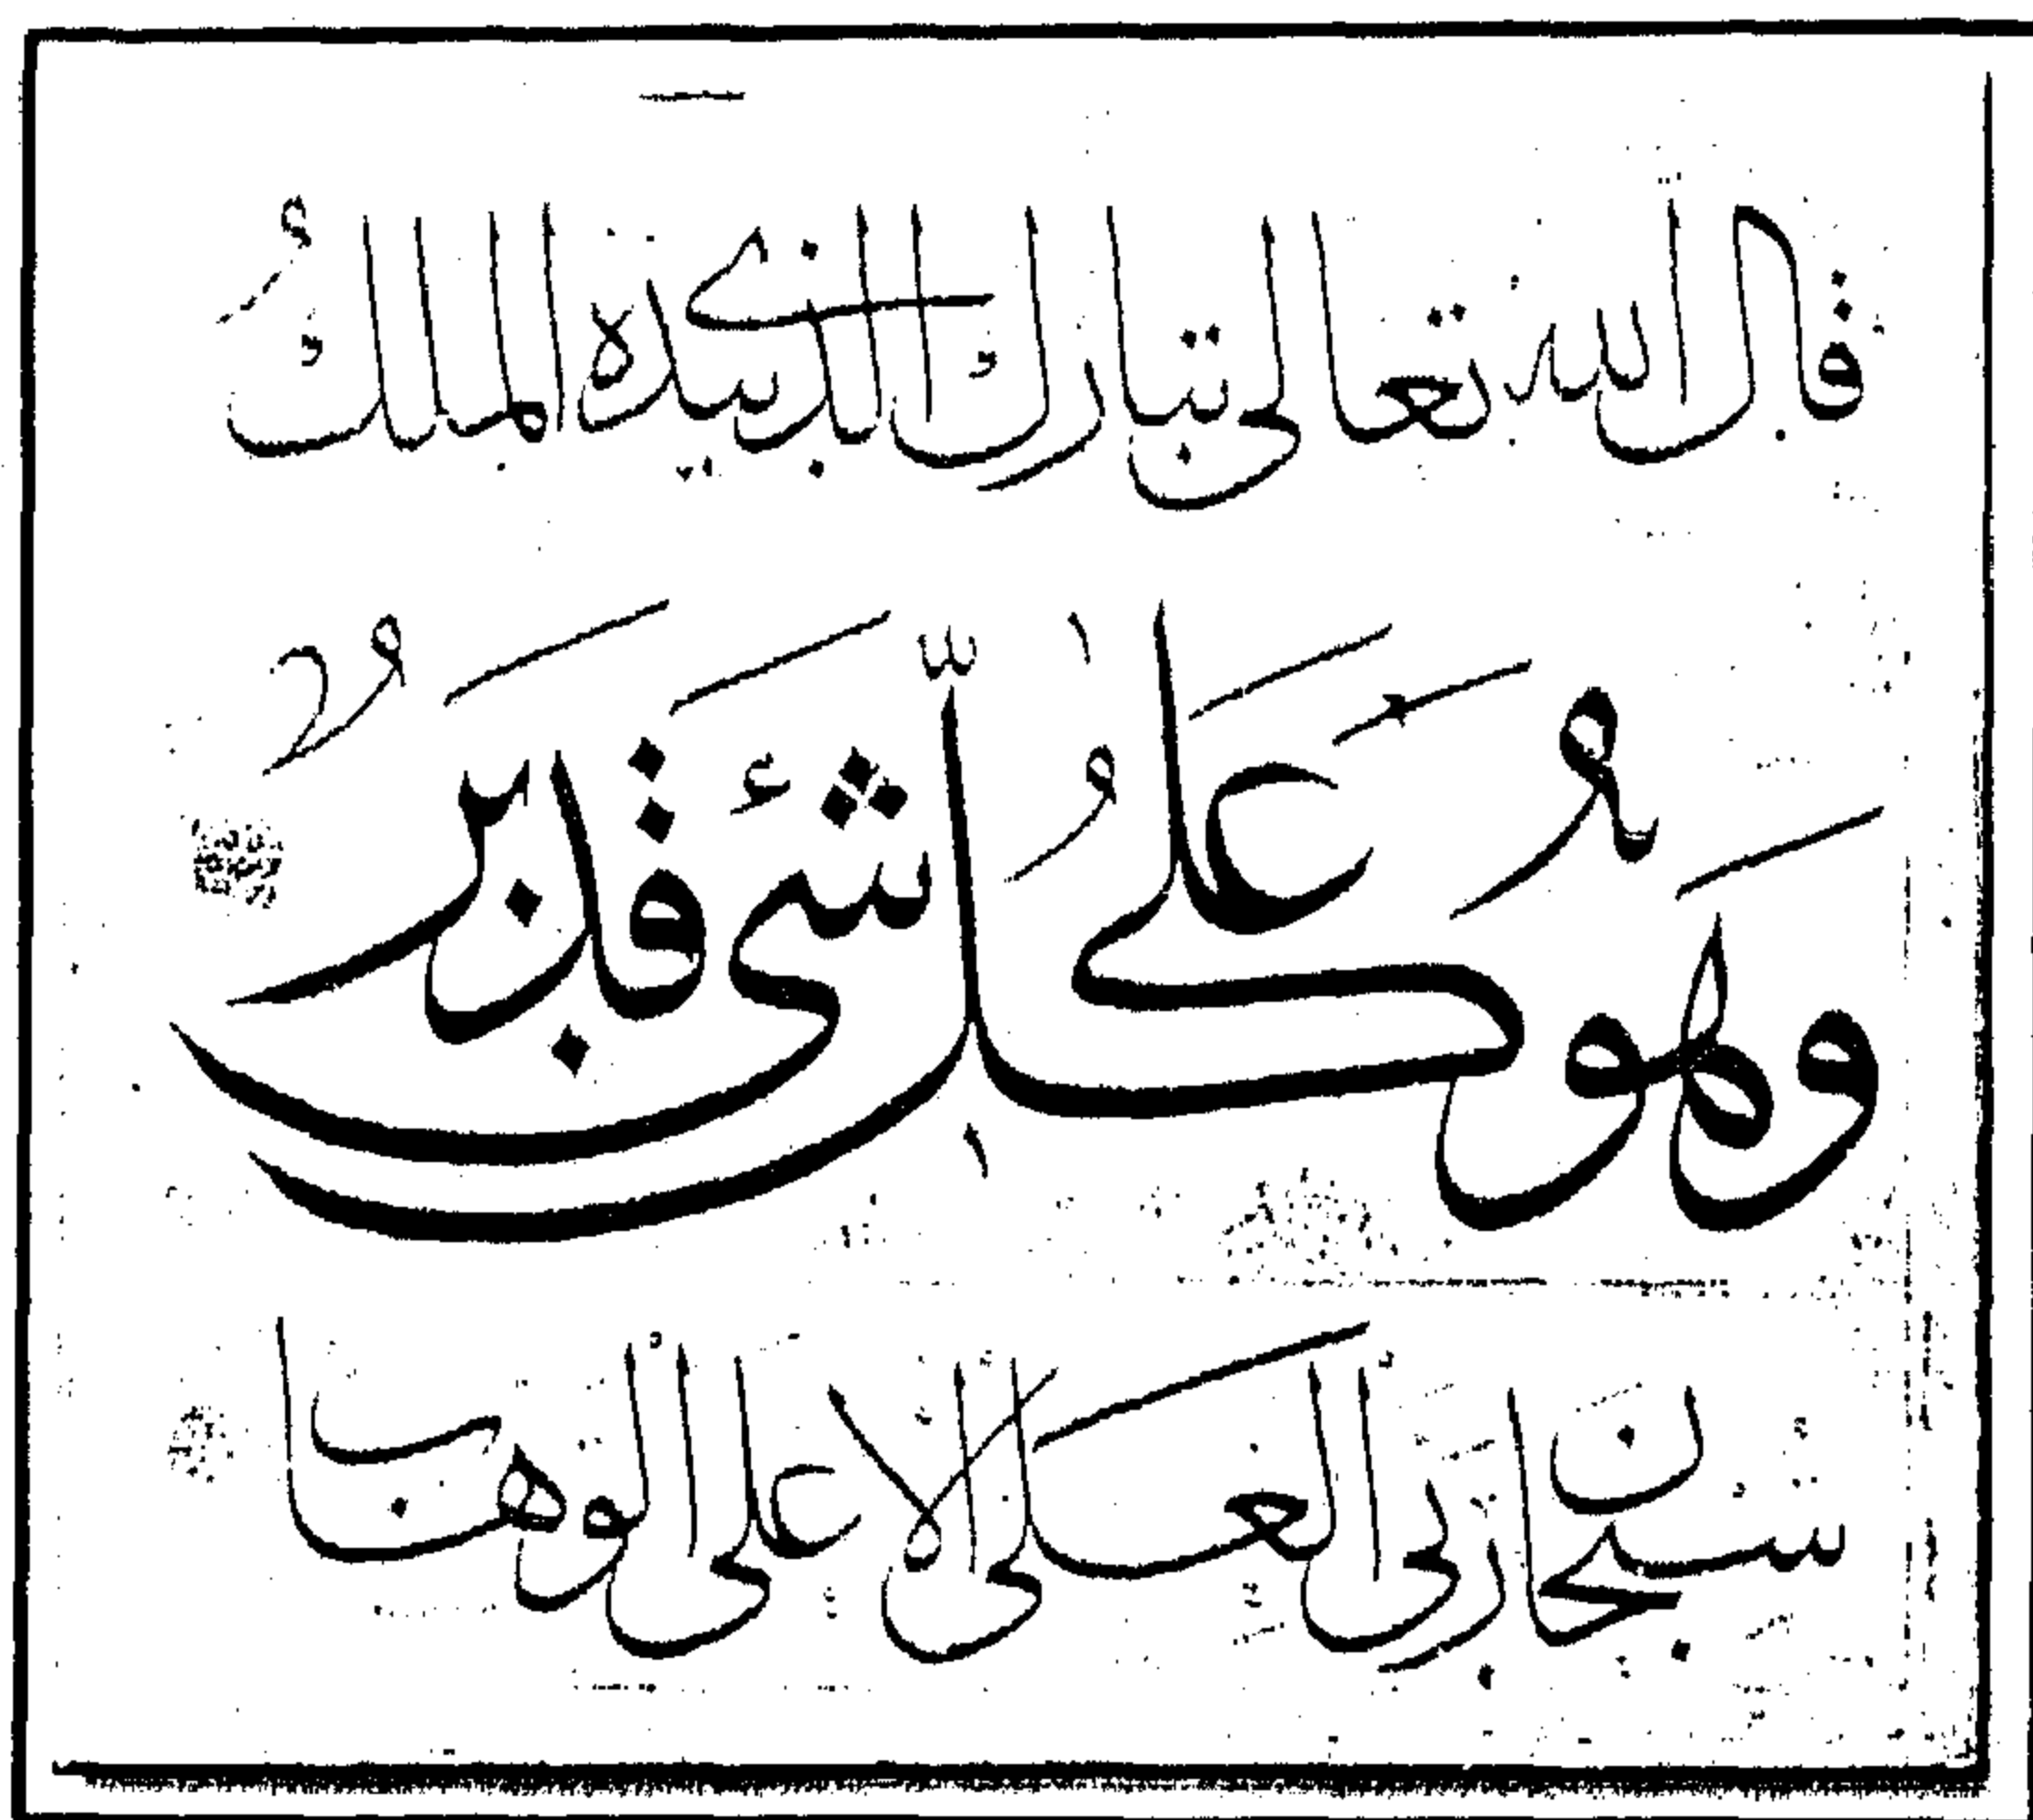 قال الله تعالى تبارك الذي بيده الملك
وَهُوَ عَلٰى كُلِّ شَىْءٍ قَدِيرٌ
سبحان ربي العلي الاعلى الوهاب